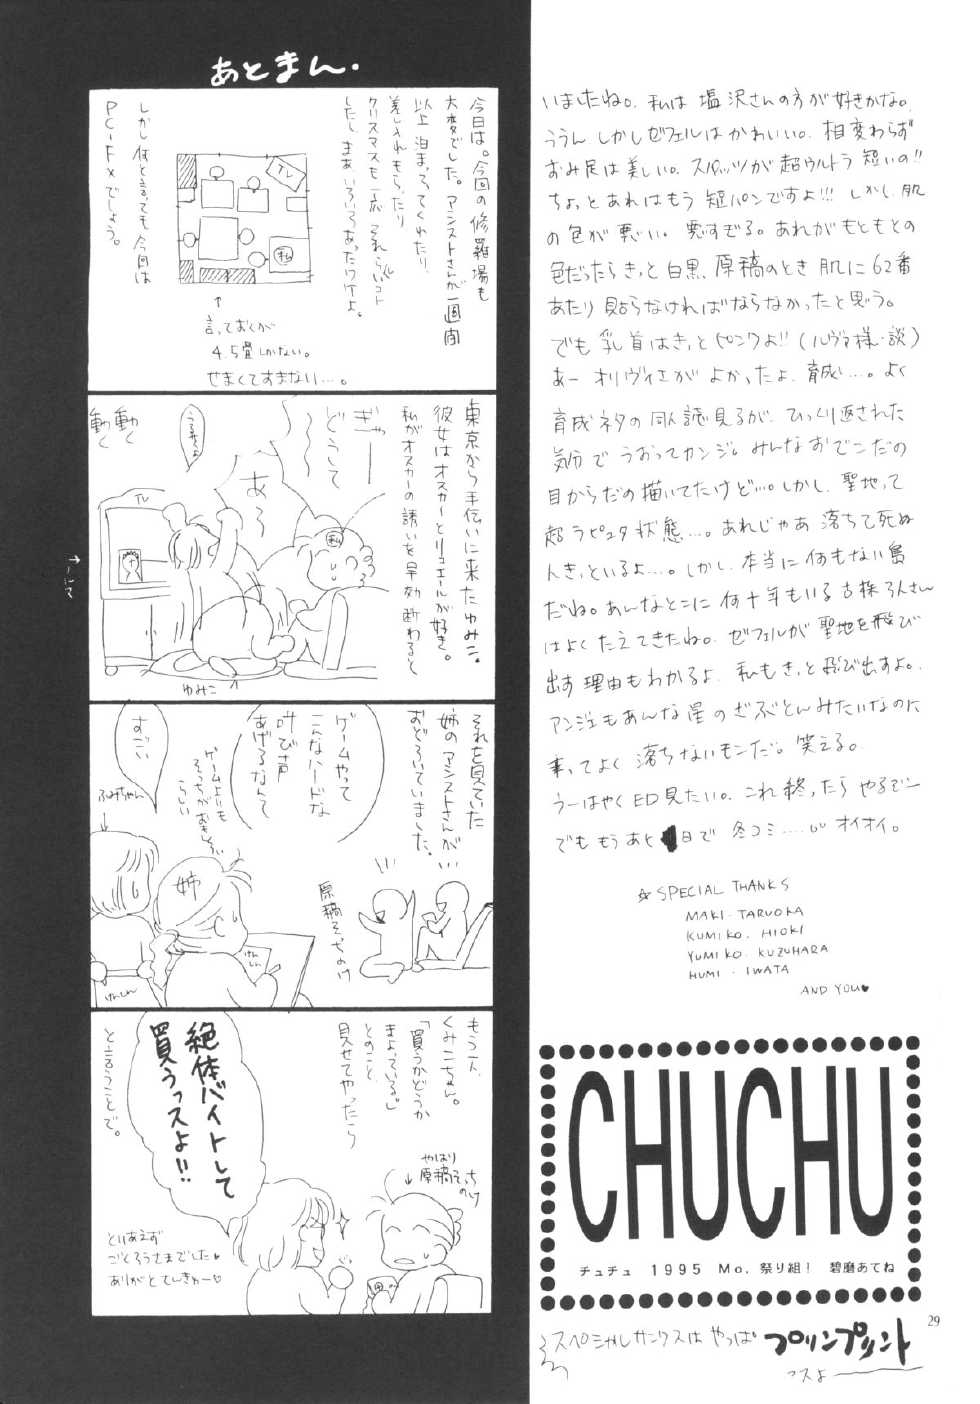 あとまん.
今日は。今回の修羅場も
大変でした。アシストさんが一週間
以上泊まってくれたり、
差し入れもらったり
クリスマスも一応それらしいコト
したし、まあ、いろいろあったワケよ。
TV
私
↑
言っておくが
4.5畳しかない。
せまくてすまない…。
しかし何と言っても今回は
PC-FXでしょう。
東京から手伝いに来たゆみこ。
彼女はオスカーとリュミエールが好き。
私がオスカーの誘いを早効断わると
ぎゃー
どうして
〜〜
あ〜
うるせえよ
動く
動く
TV
私
ゆみこ
それを見ていた
姉のアシストさんが…
おどろいていました。
ゲームやって
こんなハードな
叫び声
あげるなんて
すごい
ゲームよりも
そっちがおもしろい
らしい
ふみちゃん
姉
原稿そっちのけ
げんこん
げんこん
もう一人、
くみこちゃん。
「買うかどうか
まよっている。」
とのこと、
見せてやったら
絶体バイトして
買うっスよ!!
と言うことで。
やはり
原稿そっち
のけ
とりあえず
ごくろうさまでした♥
ありがとてんきゅー♡
いましたね。私は塩沢さんの方が好きかな。
ううんしかしゼフェルはかわいい。相変わらず
おみ足は美しい。スパッツが超ウルトラ短いの!!
ちょっとあれはもう短パンですよ!!! しかし、肌
の色が悪い。悪すぎる。あれがもともとの
色だったらきっと白黒原稿のとき肌に62番
あたり貼らなければならなかったと思う。
でも乳首はきっとピンクよ!!(ルヴァ様・談)
あーオリヴィエさがよかったよ、育成…。よく
育成ネタの同人誌見るが、ひっくり返された
気分でうおってカンジ。みんなおでこだの
目からだの描いてたけど…。しかし、聖地って
超ラピュタ状態…。あれじゃあ落ちて死ぬ
人きっといるよ…。しかし、本当に何もない島
だね。あんなとこに何十年もいる古株3人さん
はよくたえてきたね。ゼフェルが聖地を飛び
出す理由もわかるよ、私もきっと飛び出すよ。
アンジェもあんな星のざぶとんみたいなのに
乗ってよく落ちないモンだ。笑える。
うーはやくED見たい。これ終ったらやるでー
でももうあと日で冬コミ……。オイオイ。
☆SPECIAL THANKS
MAKI・TARUOKA
KUMIKO・HIOKI
YUMIKO・KUZUHARA
HUMI・IWATA
AND YOU♥
CHUCHU
チュチュ 1995 Mo.祭り組! 碧磨あてね
29
スペシャルサンクスはやっぱ プリンプリント
っスよー